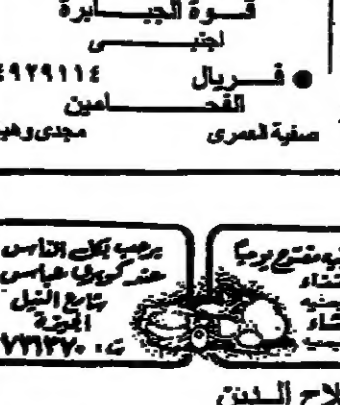 قـــوة الجبـــابرة
اجنبـــــى
● فــريال
٤٩٢٩١١٤
القحــــــامين
صفية العمرى
مجدى وهبـ
يرحب بكل الناس
عند كوبرى عباس
شارع النيل
الجيزة
ت : ٧٣١٣٧٠
مفتوح يومياً
ـلاح الـديـن